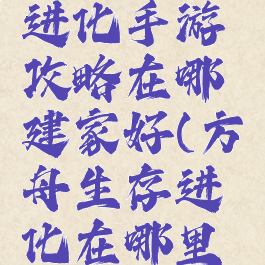 进化手游
攻略在哪
建家好(方
舟生存进
化在哪里